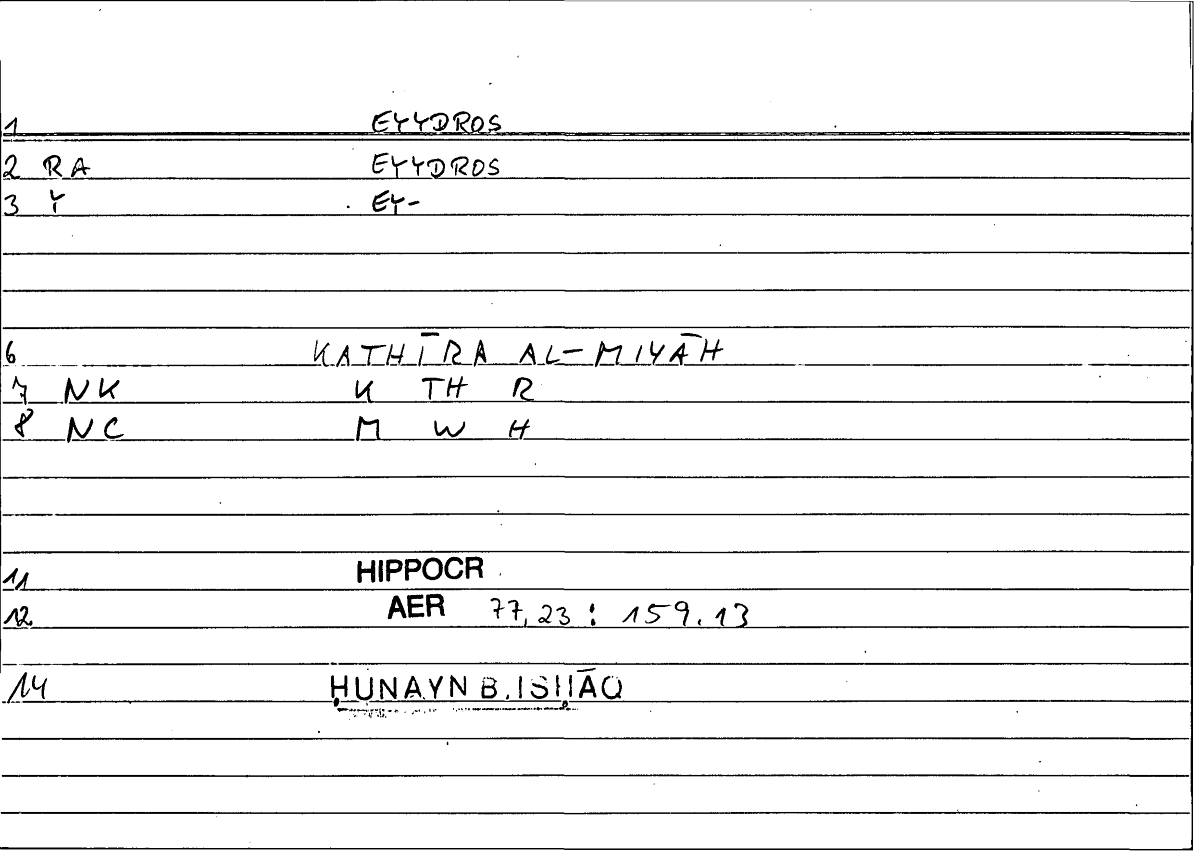 1 EYYDROS
2 RA EYYDROS
3 Y EY-
6 KATHĪRA AL-MIYĀH
7 NK K TH R
8 NC M W H
11 HIPPOCR
12 AER 77,23 : 159.13
14 ḤUNAYN B. ISḤĀQ